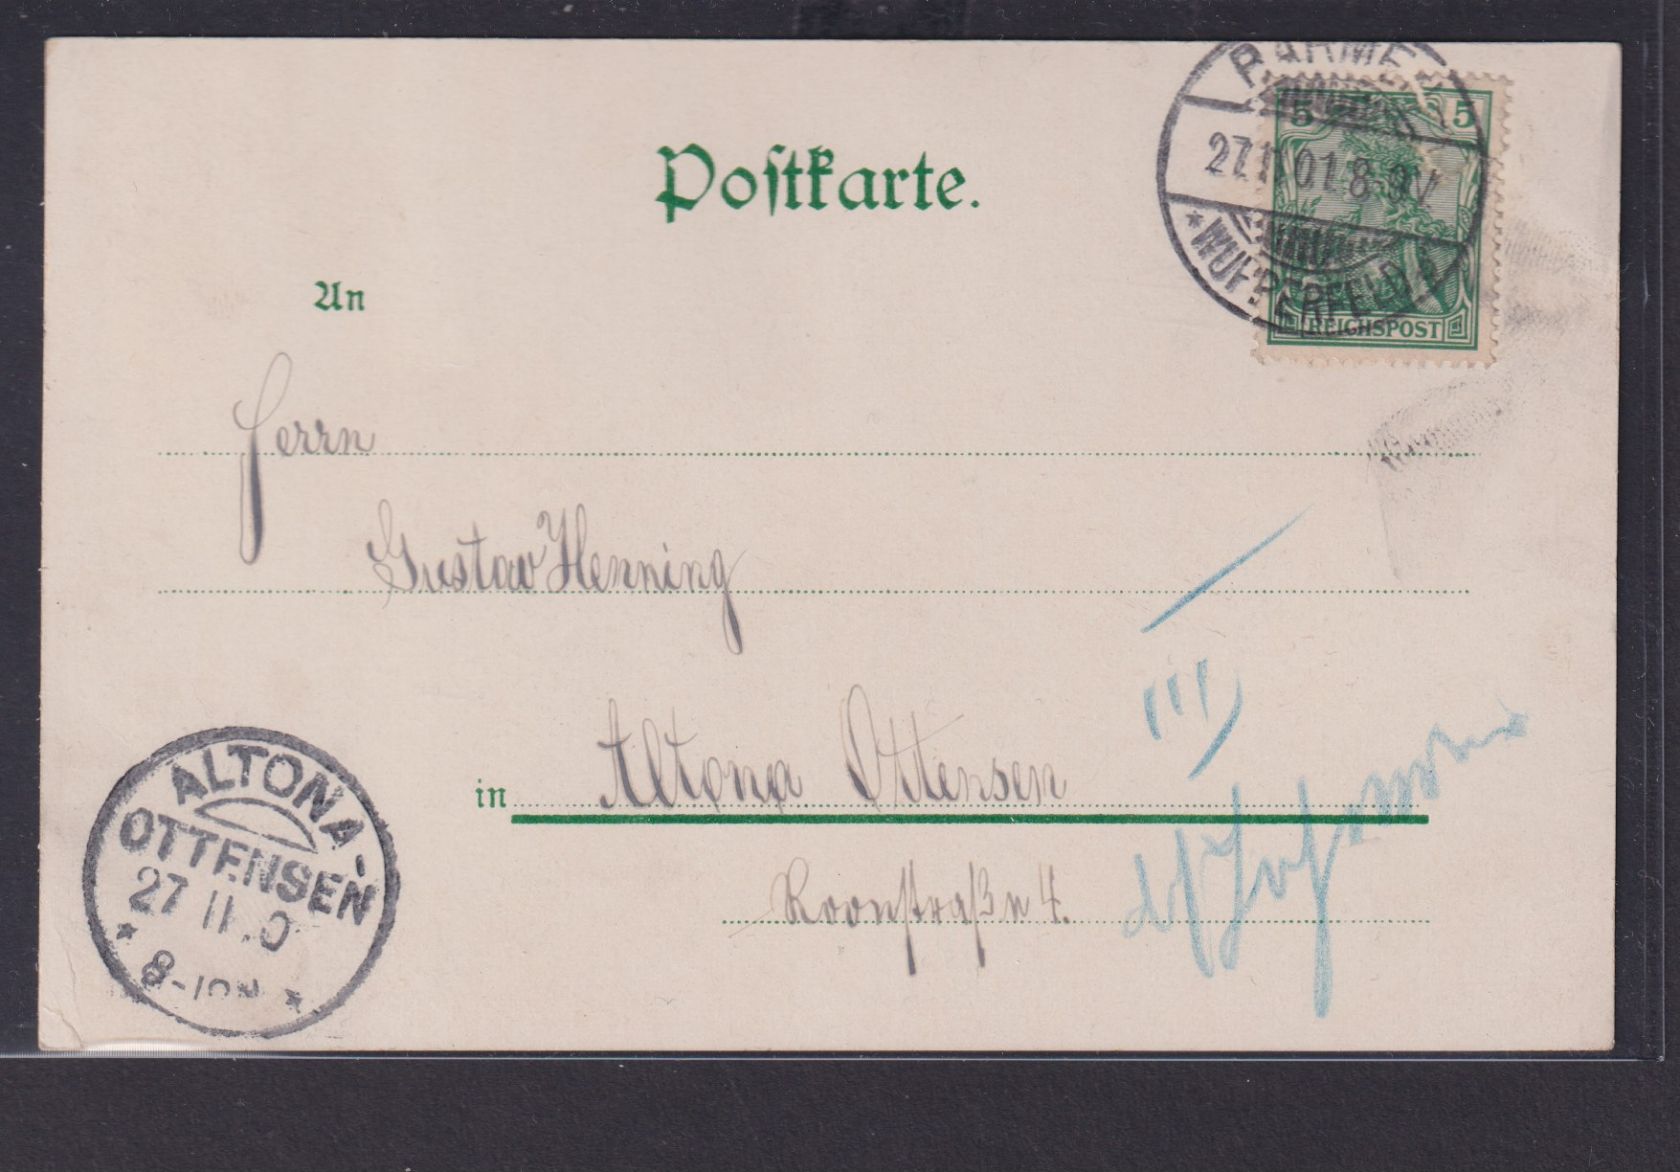 BARMEN
27.11.01.8-9V
* WUPPERFELD
5 5
REICHSPOST
Poſtkarte.
An
Herrn
Gustav Henning
in Altona Ottensen
Roonſtraße 4.
III
ALTONA-
OTTENSEN
27 11.0
* 8-10N *